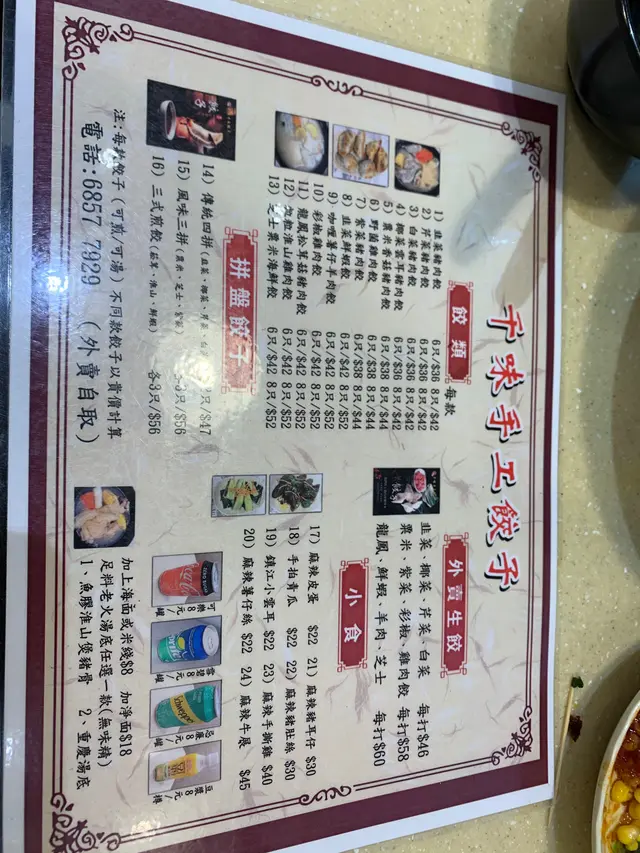 千味手工餃子
餃類
每款
1) 韭菜豬肉餃 6只/$36 8只/$42
2) 芹菜豬肉餃 6只/$36 8只/$42
3) 白菜豬肉餃 6只/$36 8只/$42
4) 椰菜雲耳豬肉餃 6只/$38 8只/$44
5) 粟米香菇豬肉餃 6只/$38 8只/$44
6) 野菌雞肉餃
7) 紫菜豬肉餃
8) 韭菜鮮蝦餃 6只/$42 8只/$52
9) 咖喱薯仔羊肉餃 6只/$42 8只/$52
10) 彩椒雞肉餃 6只/$42 8只/$52
11) 龍鳳松茸菇豬肉餃 6只/$42 8只/$52
12) 包粒淮山雞肉餃 6只/$42 8只/$52
13) 芝士粟米海鮮餃 6只/$42 8只/$52
拼盤餃子
14) 傳統四拼 (韭菜、椰菜、芹菜、白菜 /$47
15) 風味三拼 (粟米、芝士、紫菜) 3只/$56
16) 三式煎餃 (菇茸、淮山、鮮蝦) 各3只/$56
注:每款餃子(可煎/可湯)不同款餃子以貴價計算
電話:6857 7929 (外賣自取)
外賣生餃
韭菜、椰菜、芹菜、白菜 每打$46
粟米、紫菜、彩椒、雞肉餃 每打$58
龍鳳、鮮蝦、羊肉、芝士 每打$60
小食
17) 麻辣皮蛋 $22 21) 麻辣豬耳仔 $30
18) 手拍青瓜 $22 22) 麻辣豬肚絲 $30
19) 鎮江小雲耳 $22 23) 麻辣手撕雞 $40
20) 麻辣薯仔絲 $22 24) 麻辣牛展 $45
可樂 8元/罐
雪碧 8元/罐
忌廉 8元/罐
豆漿 8元/樽
加上海面或米綫$8 加淨面$18
足料老火湯底任選一款(無味精)
1、魚膠淮山煲豬骨 2、重慶湯底